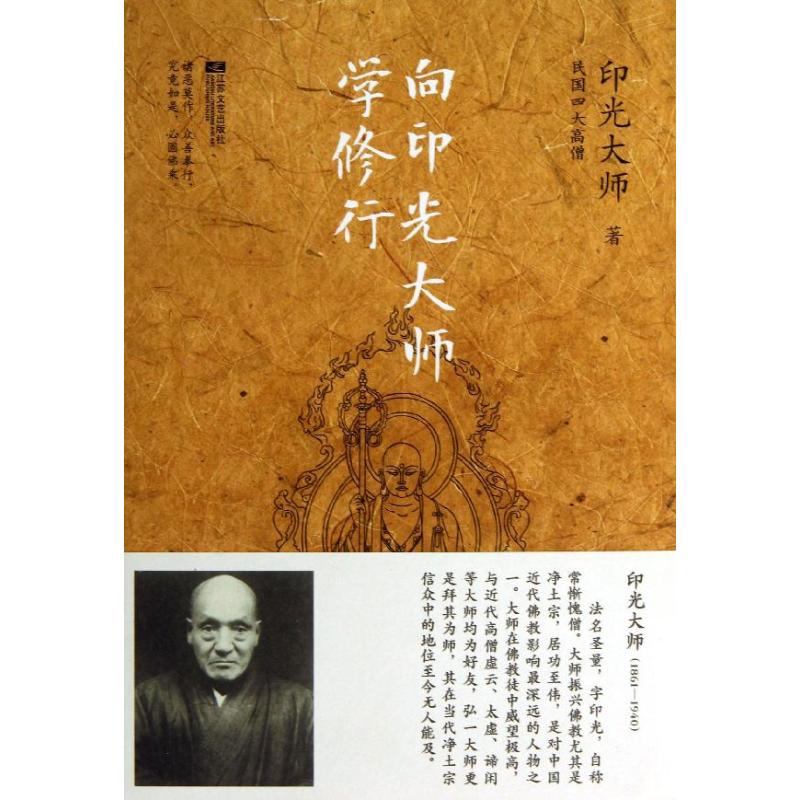 印光大师 著
民国四大高僧
向印光大师
学修行
江苏文艺出版社
诸恶莫作，众善奉行，
究竟如是，必圆佛乘。
印光大师（1861—1940）
法名圣量，字印光，自称
常惭愧僧。大师振兴佛教尤其是
净土宗，居功至伟，是对中国
近代佛教影响最深远的人物之
一。大师在佛教徒中威望极高，
与近代高僧虚云、太虚、谛闲
等大师均为好友，弘一大师更
是拜其为师，其在当代净土宗
信众中的地位至今无人能及。